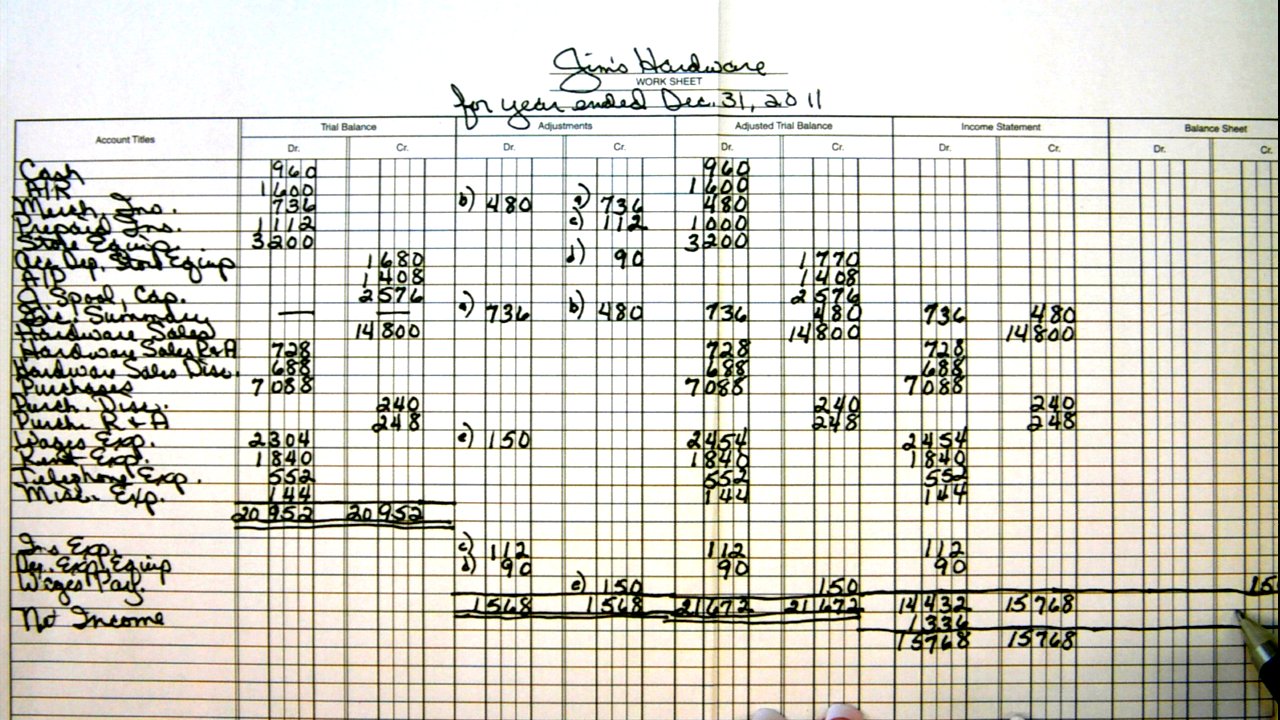 Jim's Hardware
WORK SHEET
for year ended Dec. 31, 2011
Account Titles Trial Balance Adjustments Adjusted Trial Balance Income Statement Balance Sheet
Dr. Cr. Dr. Cr. Dr. Cr. Dr. Cr. Dr. Cr.
Cash 960 960
A/R 1600 1600
Merch. Inv. 736 b) 480 a) 736 480
Prepaid Ins. 1112 c) 112 1000
Store Equip. 3200 3200
Acc. Dep. Store Equip 1680 d) 90 1770
A/P 1408 1408
J. Spool, Cap. 2576 2576
Inc. Summary — — a) 736 b) 480 736 480 736 480
Hardware Sales 14800 14800 14800
Hardware Sales R&A 728 728 728
Hardware Sales Disc. 688 688 688
Purchases 7088 7088 7088
Purch. Disc. 240 240 240
Purch. R&A 248 248 248
Wages Exp. 2304 e) 150 2454 2454
Rent Exp. 1840 1840 1840
Telephone Exp. 552 552 552
Misc. Exp. 144 144 144
20952 20952
Ins Exp. c) 112 112 112
Dep. Exp. Equip d) 90 90 90
Wages Pay. e) 150 150 15
1568 1568 21672 21672 14432 15768
Net Income 1336
15768 15768